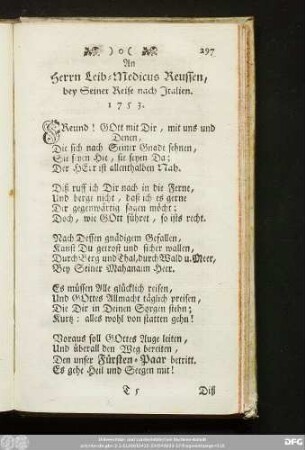 ) o (
297
An
Herrn Leib-Medicus Reussen,
bey Seiner Reise nach Italien.
1753.
FReund! GOtt mit Dir, mit uns und
Denen,
Die sich nach Seiner Gnade sehnen,
Sie seyen Hie, sie seyen Da;
Der HErr ist allenthalben Nah.
Diß ruff ich Dir nach in die Ferne,
Und berge nicht, daß ich es gerne
Dir gegenwärtig sagen möcht:
Doch, wie GOtt führet, so ists recht.
Nach Dessen gnädigem Gefallen,
Kanst Du getrost und sicher wallen,
Durch Berg und Thal, durch Wald u. Meer,
Bey Seiner Mahanaim Heer.
Es müssen Alle glücklich reisen,
Und GOttes Allmacht täglich preisen,
Die Dir in Deinen Sorgen stehn;
Kurtz: alles wohl von statten gehn!
Voraus soll GOttes Auge leiten,
Und überall den Weg bereiten,
Den unser Fürsten-Paar betritt.
Es gehe Heil und Seegen mit!
T 5
Diß